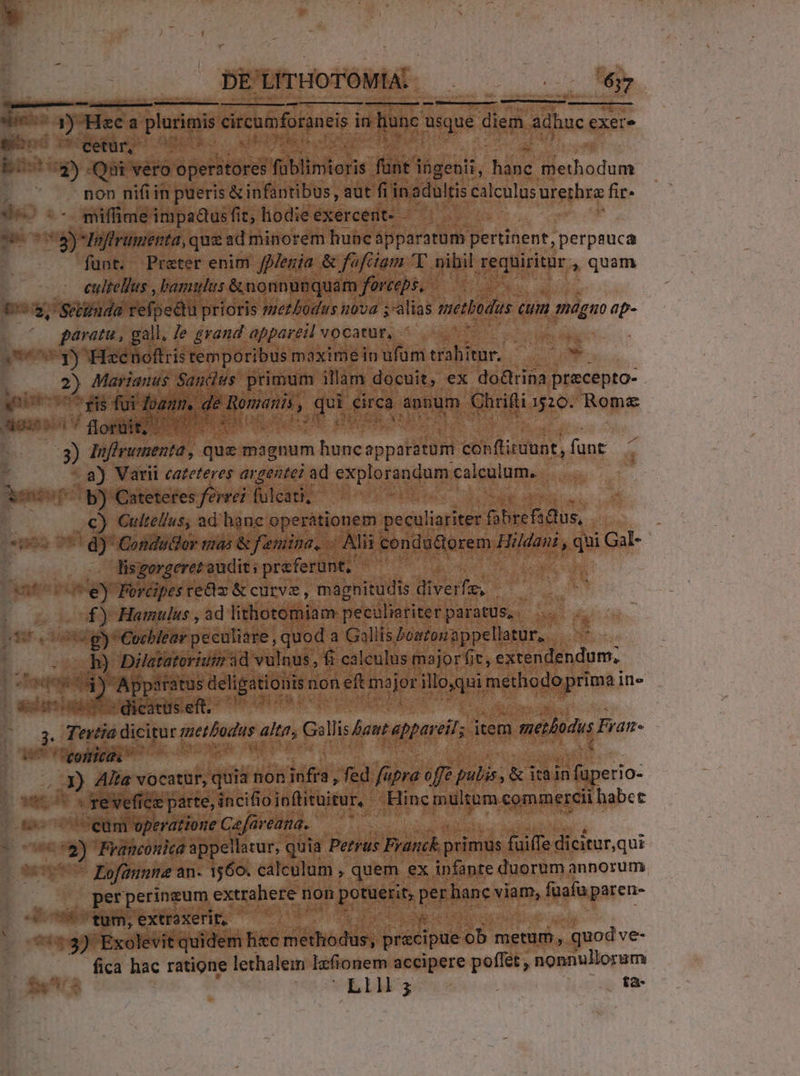 DE LITHOTOMIA. 637
1) Hæc a plurimis circumforaneis in hunc usque diem adhuc exer-
cetur,
2) Qui vero operatores sublimioris sunt ingenii, hanc methodum
non nisi in pueris & infantibus, aut si in adultis calculus urethræ fir-
missime impactus sit, hodie exercent.
3) Instrumenta, quæ ad minorem hunc apparatum pertinent, perpauca
sunt. Præter enim splenia & fasciam T nihil requiritur, quam
cultellus, hamulus & nonnunquam forceps.
2, Secunda respectu prioris methodus nova; alias methodus cum magno ap-
paratu, gall, le grand appareil vocatur,
1) Hæc nostris temporibus maxime in usum trahitur.
2) Marianus Sanctus primum illam docuit, ex doctrina præcepto-
ris sui Joann. de Romanis, qui circa annum Christi 1520. Romæ
floruit,
3) Instrumenta, quæ magnum hunc apparatum constituunt, sunt
a) Varii cateteres argentei ad explorandum calculum.
b) Cateteres ferrei sulcati,
c) Cultellus, ad hanc operationem peculiariter fabrefactus,
d) Conductor mas & femina, Alii conductorem Hildani, qui Gal-
lis gorgeret audit; præferunt,
e) Forcipes rectæ & curvæ, magnitudis diversæ,
f) Hamulus, ad lithotomiam peculiariter paratus,
g) Cochlear peculiare, quod a Gallis bouton appellatur,
h) Dilatatorium ad vulnus, si calculus major sit, extendendum,
i) Apparatus deligationis non est major illo, qui methodo prima in-
dicatus est.
3. Tertia dicitur methodus alta, Gallis haut appareil; item methodus Fran-
conica.
1) Alta vocatur, quia non infra, sed supra osse pubis, & ita in superio-
re vesicæ parte, incisio instituitur, Hinc multum commercii habet
cum operatione Cæsareana.
2) Franconica appellatur, quia Petrus Franck primus fuisse dicitur, qui
Losannæ an. 1560. calculum, quem ex infante duorum annorum
per perinæum extrahere non potuerit, per hanc viam, suasu paren-
tum, extraxerit,
3) Exolevit quidem hæc methodus, præcipue ob metum, quod ve-
sica hac ratione lethalem læsionem accipere posset, nonnullorum
Llll 3 ta-